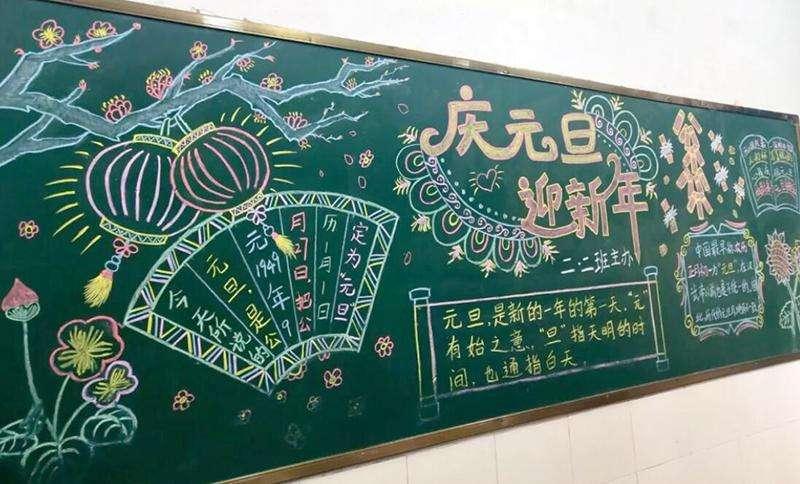 今天所说的
元旦,是公
元1949年9
月27日,把公
历一月一日
定为“元旦”
庆元旦
迎新年
二.二班主办
元旦,是新的一年的第一天,“元”
有始之意,“旦”指天明的时
间,也通指白天.
中国最早